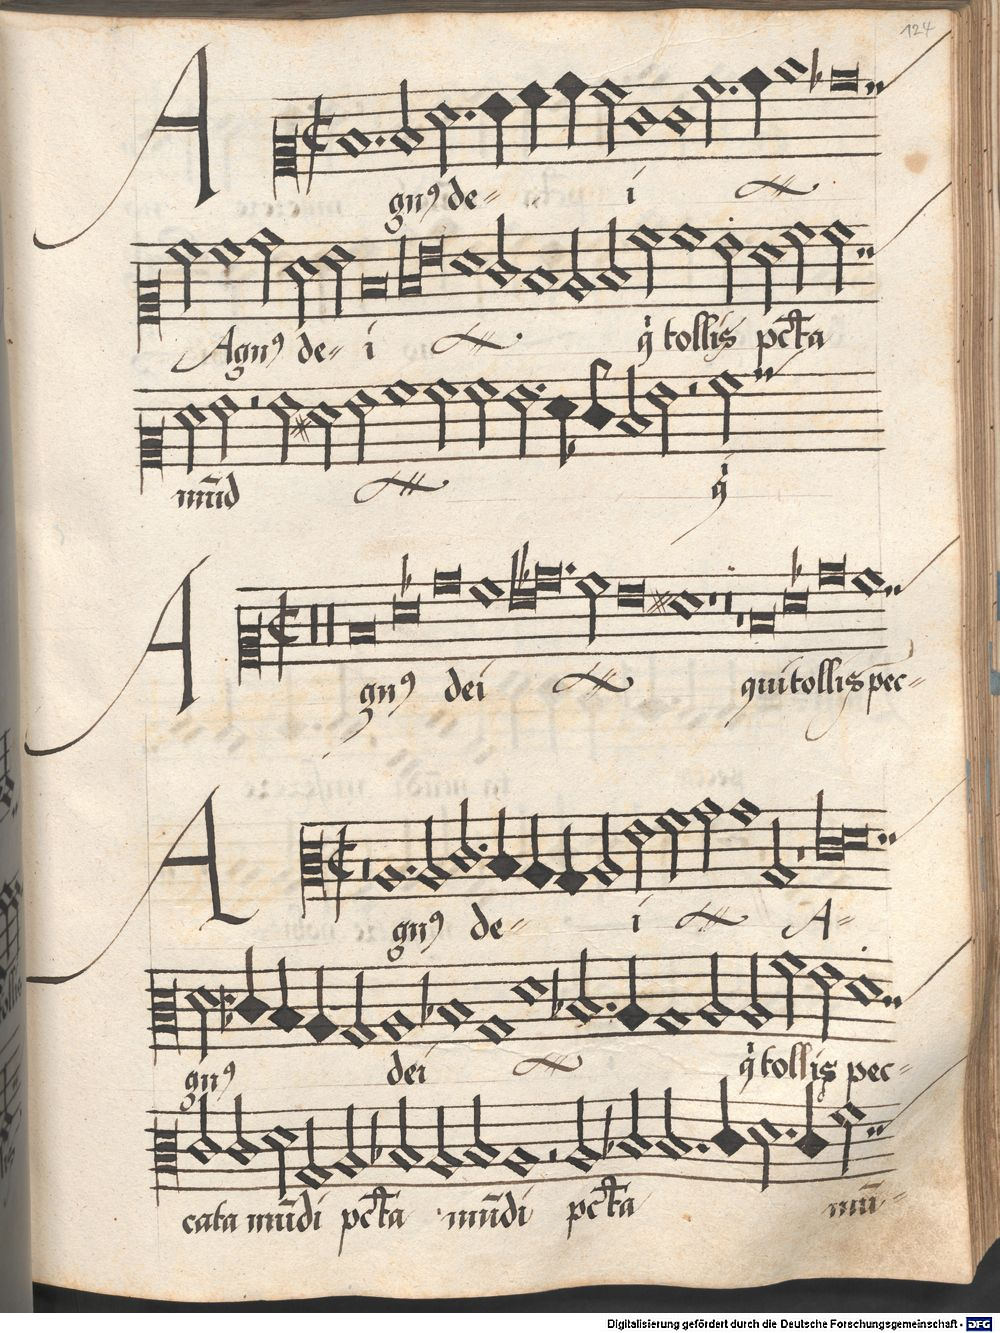 124
Agnꝰ de- i
Agnꝰ de- i q̇ tollis pcta
mūd q̇
Agnꝰ dei qui tollis pec-
Agnꝰ de- i A-
gnꝰ dei q̇ tollis pec-
cata mūdi pcta mūdi pcta mū-
Digitalisierung gefördert durch die Deutsche Forschungsgemeinschaft - DFG